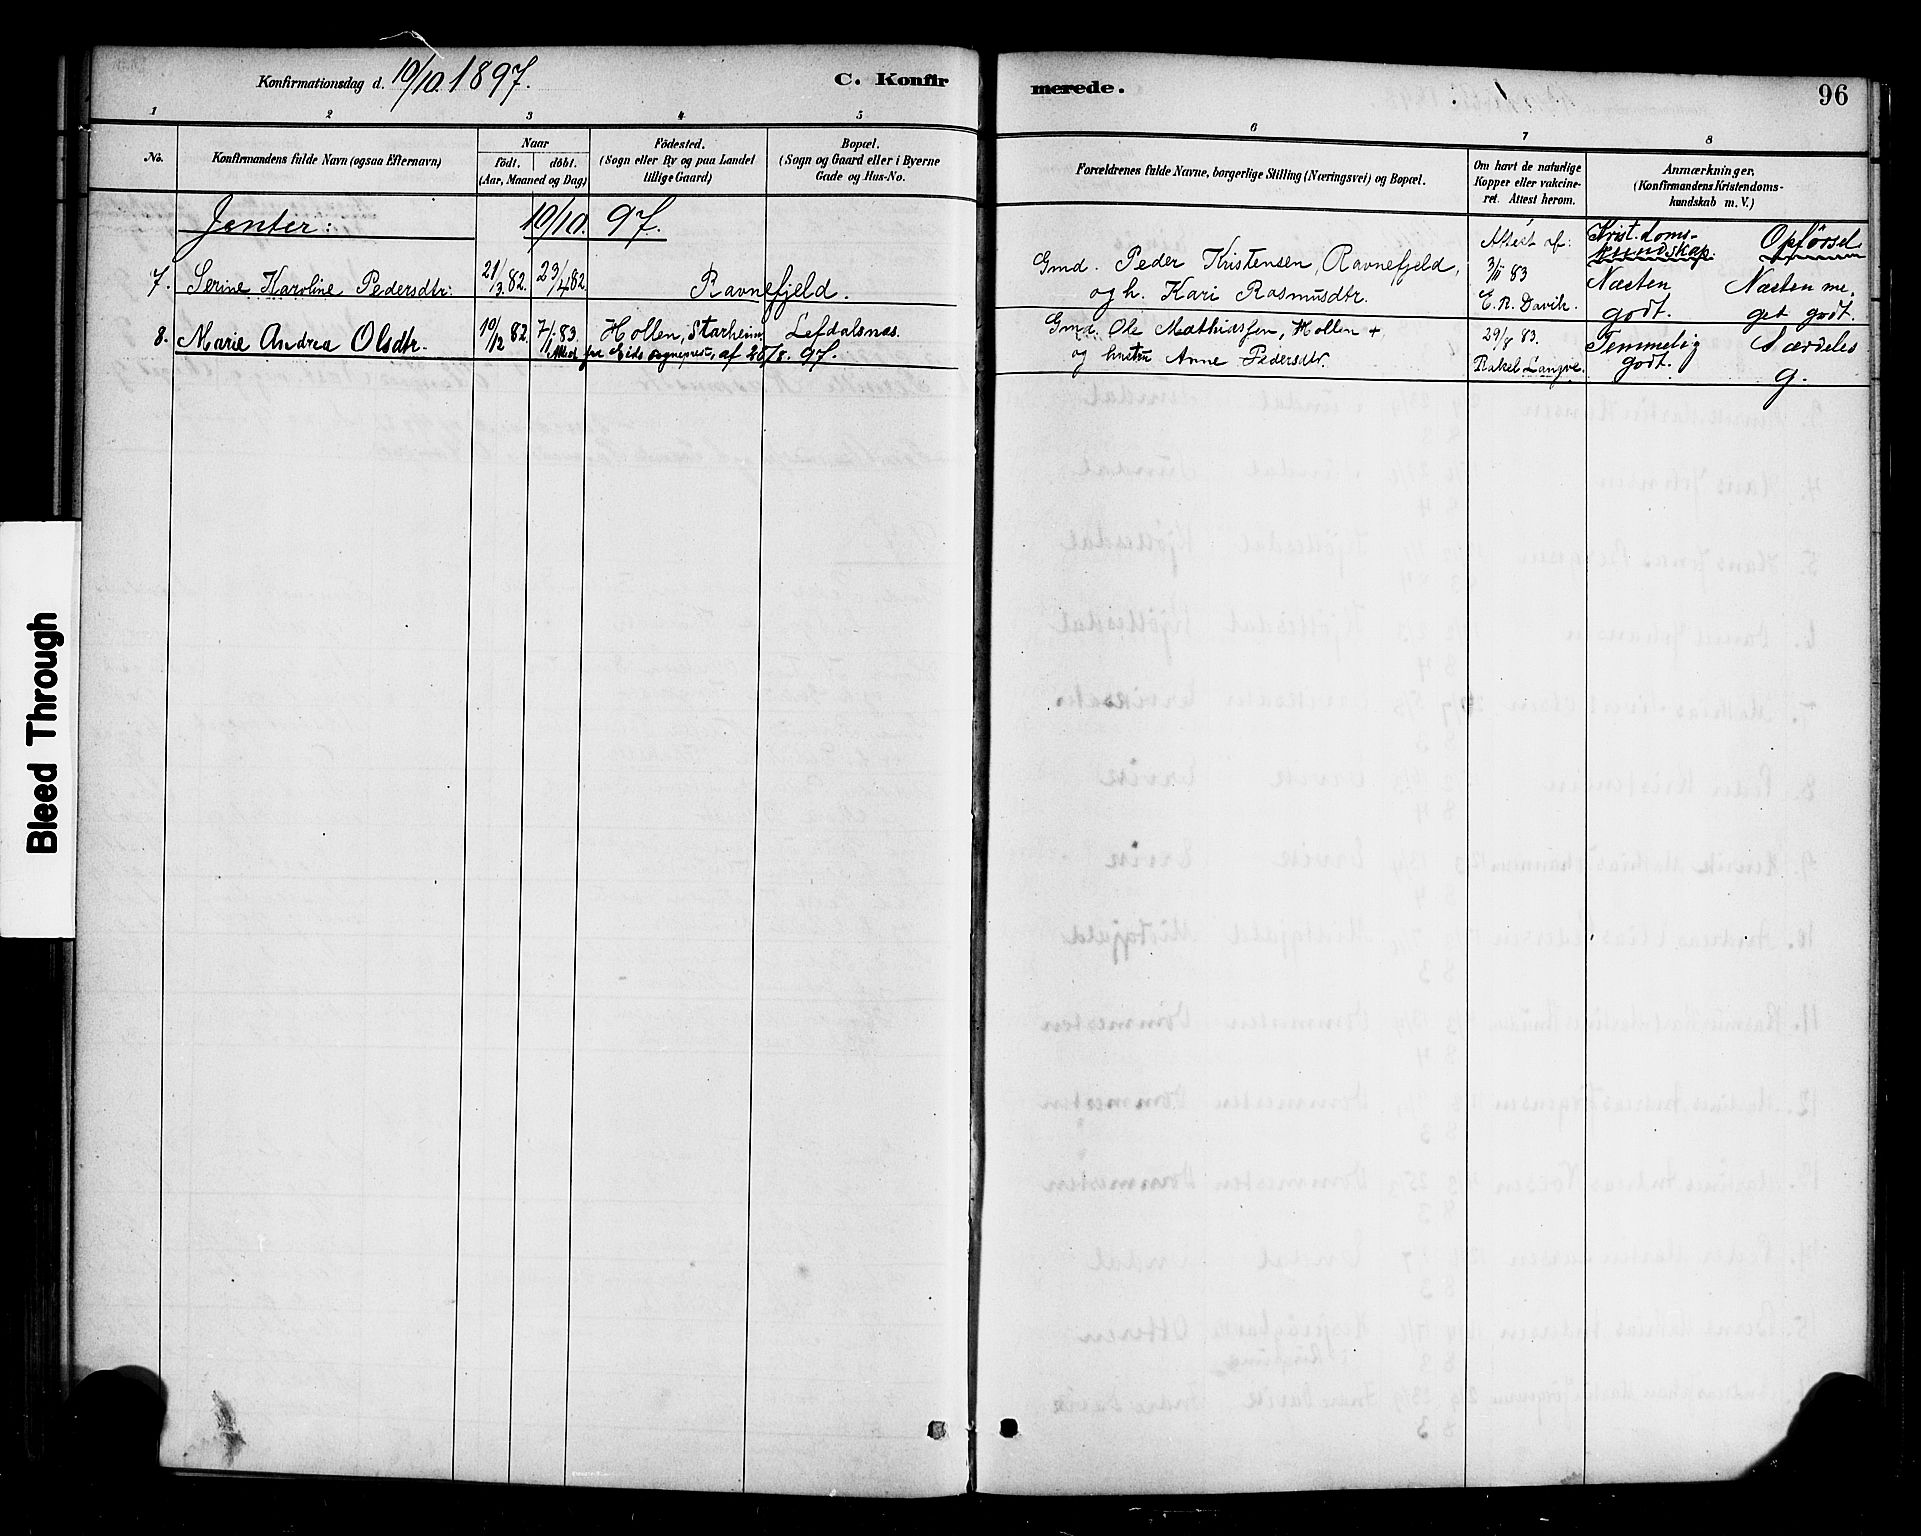 Konfirmationsdag d. 10/10 1897.
C. Konfir
merede.
96
1 2 3 4 5 6 7 8
No.
Konfirmandens fulde Navn (ogsaa Efternavn)
Naar
födt. döbt.
(Aar, Maaned og Dag)
Födested.
(Sogn eller By og paa Landet
tillige Gaard)
Bopæl.
(Sogn og Gaard eller i Byerne
Gade og Hus-No.
Forældrenes fulde Navne, borgerlige Stilling (Næringsvei) og Bopæl.
Om havt de naturlige
Kopper eller vakcine-
ret. Attest herom.
Anmærkninger,
(Konfirmandens Kristendoms-
kundskab m. V.)
Jenter:
10/10 97.
Attest af:
Krist.doms-
kundskap.
Opförsel
7. Serine Karoline Pedersdtr. 21/3 82. 23/4 82. Ravnefjeld.
Gmd. Peder Kristensen, Ravnefjeld,
og h. Kari Rasmusdtr.
3/11 83
E. R. Davik.
Næsten
godt.
Næsten me.
get godt.
8. Marie Andrea Olsdtr. 10/12 82 7/1 83. Hollen, Starheim Lefdalsnæs.
Attest fra Eids sogneprest, af 20/8. 97.
Gmd. Ole Mathiassen, Hollen +
og hustru Anne Pedersdtr.
29/8 83.
Rakel Langve.
Temmelig
godt.
Særdeles
g.
Bleed Through